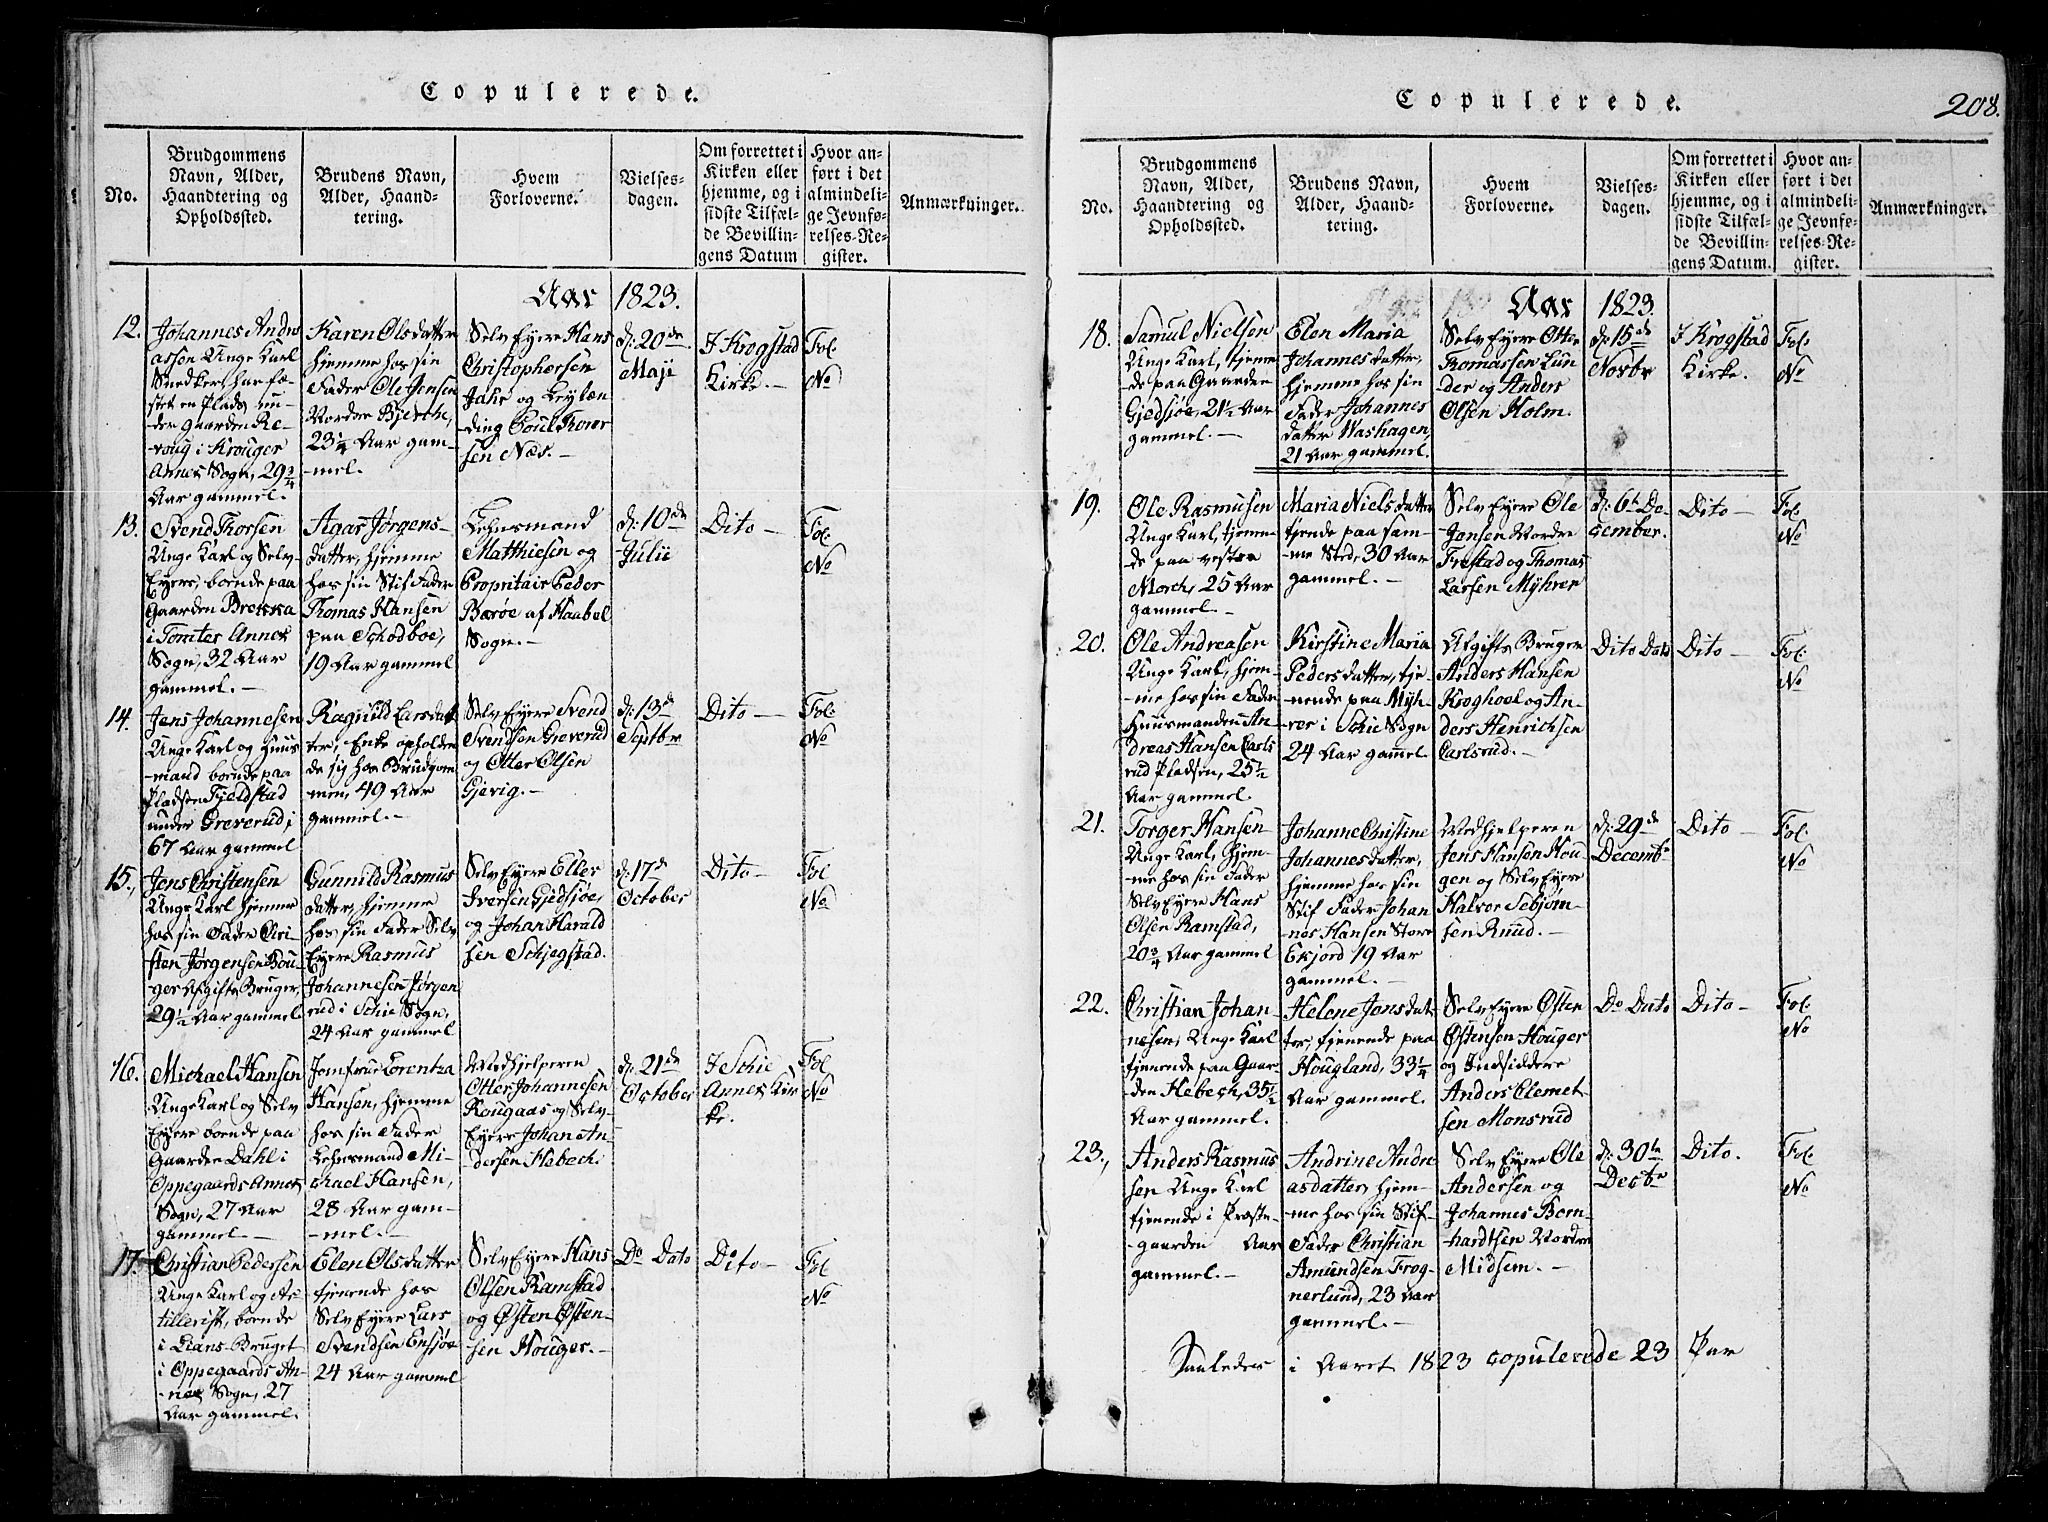 Copulerede.
No.
Brudgommens
Navn, Alder,
Haandtering og
Opholdssted.
Brudens Navn,
Alder, Haand-
tering.
Hvem
Forloverne.
Vielses-
dagen.
Om forrettet i
Kirken eller
hjemme, og i
sidste Tilfæl-
de Bevillin-
gens Datum
Hvor an-
ført i det
almindeli-
ge Jevnfø-
relses-Re-
gister.
Anmærkninger.
Aar 1823.
12.
Johannes Andre
assen Unge Karl
Snedker, har fæ-
stet en Plads un-
der Gaarden Re-
voug i Krouger
Annex Sogn, 29 3/4
Aar gammel.
Karen Olsdatter
hjemme hos sin
Fader Ole Jensen
Nordre Bjerche,
23 1/4 Aar gam-
mel.
Selv Eyere Hans
Christophersen
Jahr og Leylæn-
ding Poul Thorer
sen Næs.-
d: 20de
Maji
I Krogstad
Kirke.-
Fol
No
13.
Svend Thorsen
Unge Karl og Selv-
Eyere, boende paa
Gaarden Brekka
i Tomter Annex
Sogn, 32 Aar
gammel.-
Agas Jørgens-
datter, hjemme
hos sin Stif Fader
Thomas Hansen
paa Schodboe,
19 Aar gammel
Lehnsmand
Matthiesen og
Propritair Peder
Børøe af Haabel
Sogn.-
d: 10de
Julii
Dito-
Fol.
No
14.
Jens Johannesen
Unge Karl og Huus
mand boende paa
Pladsen Fjeldstad
under Greverud,
67 Aar gammel
Ragnild Larsdat-
ter, Enke opholden
de sig hos Brudgom
men, 49 Aar
gammel.-
Selv Eyere Svend
Svendsen Greverud
og Otter Olsen
Gjevig.-
d: 13de
Septbr
Dito-
Fol
No
15.,
Jens Christensen
Unge Karl hjemme
hos sin Fader Chri-
sten Jørgensen Bou-
ger Afgifts Bruger,
29 1/2 Aar gammel
Gunnild Rasmus
datter, hjemme
hos sin Fader Selv
Eyere Rasmus
Johannesen Jørgen
rud i Schie Sogn,
24 Aar gammel
Selv Eyere Eller
Iversen Gjedsjøe,
og Johan Harald
sen Schjegstad.
d: 17d
October
Dito-
Fol
No
16.
Michael Hansen
Unge Karl og Selv
Eyere boende paa
Gaarden Dahl i
Oppegaards Annex
Sogn, 27 Aar
gammel.-
Jomfrue Lorentza
Hansen, hjemme
hos sin Fader
Lehnsmand Mi-
chael Hansen,
28 Aar gam-
mel.-
Medhjelperen
Otter Johannesen
Kougaas og Selv-
Eyere Johan An-
dersen Hebech.
d: 21de
October
I Schie
Annex Kir
ke.
Fol
No
17.
Christian Pedersen
Unge Karl og Ar-
tillerist, boende
i Lians-Bruget
i Oppegaards An-
nex Sogn, 27
Aar gammel.
Elen Olsdatter
tjenende hos
Selv Eyere Lars
Svendsen Ensjøe
24 Aar gammel
Selv Eyere Hans
Olsen Ramstad
og Østen Østen-
sen Houger.-
Do Dato
Dito-
Fol
No
Copulerede.
208.
No.
Brudgommens
Navn, Alder,
Haandtering og
Opholdssted.
Brudens Navn,
Alder, Haand-
tering.
Hvem
Forloverne.
Vielses-
dagen.
Om forrettet i
Kirken eller
hjemme, og i
sidste Tilfæl-
de Bevillin-
gens Datum.
Hvor an-
ført i det
almindeli-
ge Jevnfø-
relses-Re-
gister.
Anmærkninger.
Aar 1823.
18.
Samul Nielsen
Unge Karl, tjenen-
de paa Gaarden
Gjedsjøe, 21 1/2 Aar
gammel.-
Elen Maria
Johannesdatter,
hjemme hos sin
Fader Johannes
datter Washagen,
21 Aar gammel.
Selv Eyere Otter
Thomassen Lun
der og Anders
Olsen Holm.
d: 15de
Novbr
I Krogstad
Kirke.
Fol
No
19.
Ole Rasmusen
Unge Karl, tjenen-
de paa vestre
Morch, 25 Aar
gammel.-
Maria Nielsdatter
tjende paa sam-
me Sted, 30 Aar
gammel.-
Selv Eyere Ole
Jonsen Nordre
Frestad og Thomas
Larsen Myhrer
d: 6te De-
cember.
Dito-
Fol
No
20.
Ole Andreasen
Unge Karl, hjem-
me hos sin Fader
Huusmanden An-
dreas Hansen Carls
rud Pladsen, 25 1/2
Aar gammel
Kirstine Maria
Pedersdatter, tje-
nende paa Myh-
rer i Schie Sogn
24 Aar gammel
Afgifts Bruger
Anders Hansen
Kroghoel og An-
ders Henrichsen
Carlsrud.-
Dito Dato
Dito-
Fol
No
21.
Torger Hansen
Unge Karl, hjem-
me hos sin Fader
Selv Eyere Hans
Olsen Ramstad,
20 3/4 Aar gammel
Johanne Christine
Johannesdatter,
hjemme hos sin
Stif Fader Johan
nes Hansen Store
Ekjord 19 Aar
gammel.-
Medhjelperen
Jens Hansen Hou-
gen og Selv Eyere
Halvor Tebjørn-
sen Ruud.-
d: 29de
Decembr
Dito-
Fol
No
22.
Christian Johan-
nesen, Unge Karl
tjenende paa Gaar-
den Hebech, 35 1/2
Aar gammel.
Helene Jonsdat-
ter, tjenende paa
Hougland, 33 1/4
Aar gammel.
Selv Eyere Østen
Østensen Houger
og Indsiddere
Anders Clemet-
sen Monsrud
Do Dato
Dito-
Fol
No
23.,
Anders Rasmus
sen Unge Karl
tjenende i Præste-
gaarden Aar
gammel.-
Andrine Andre
asdatter, hjem-
me hos sin Stif-
Fader Christian
Amundsen Frog-
nerlund, 23 Aar
gammel.-
Selv Eyere Ole
Andersen og
Johannes Born-
hardtsen Nordre
Midsem.-
d: 30te
Decbr
Dito.
Fol
No
Saaledes i Aaret 1823 copulerede 23 Par